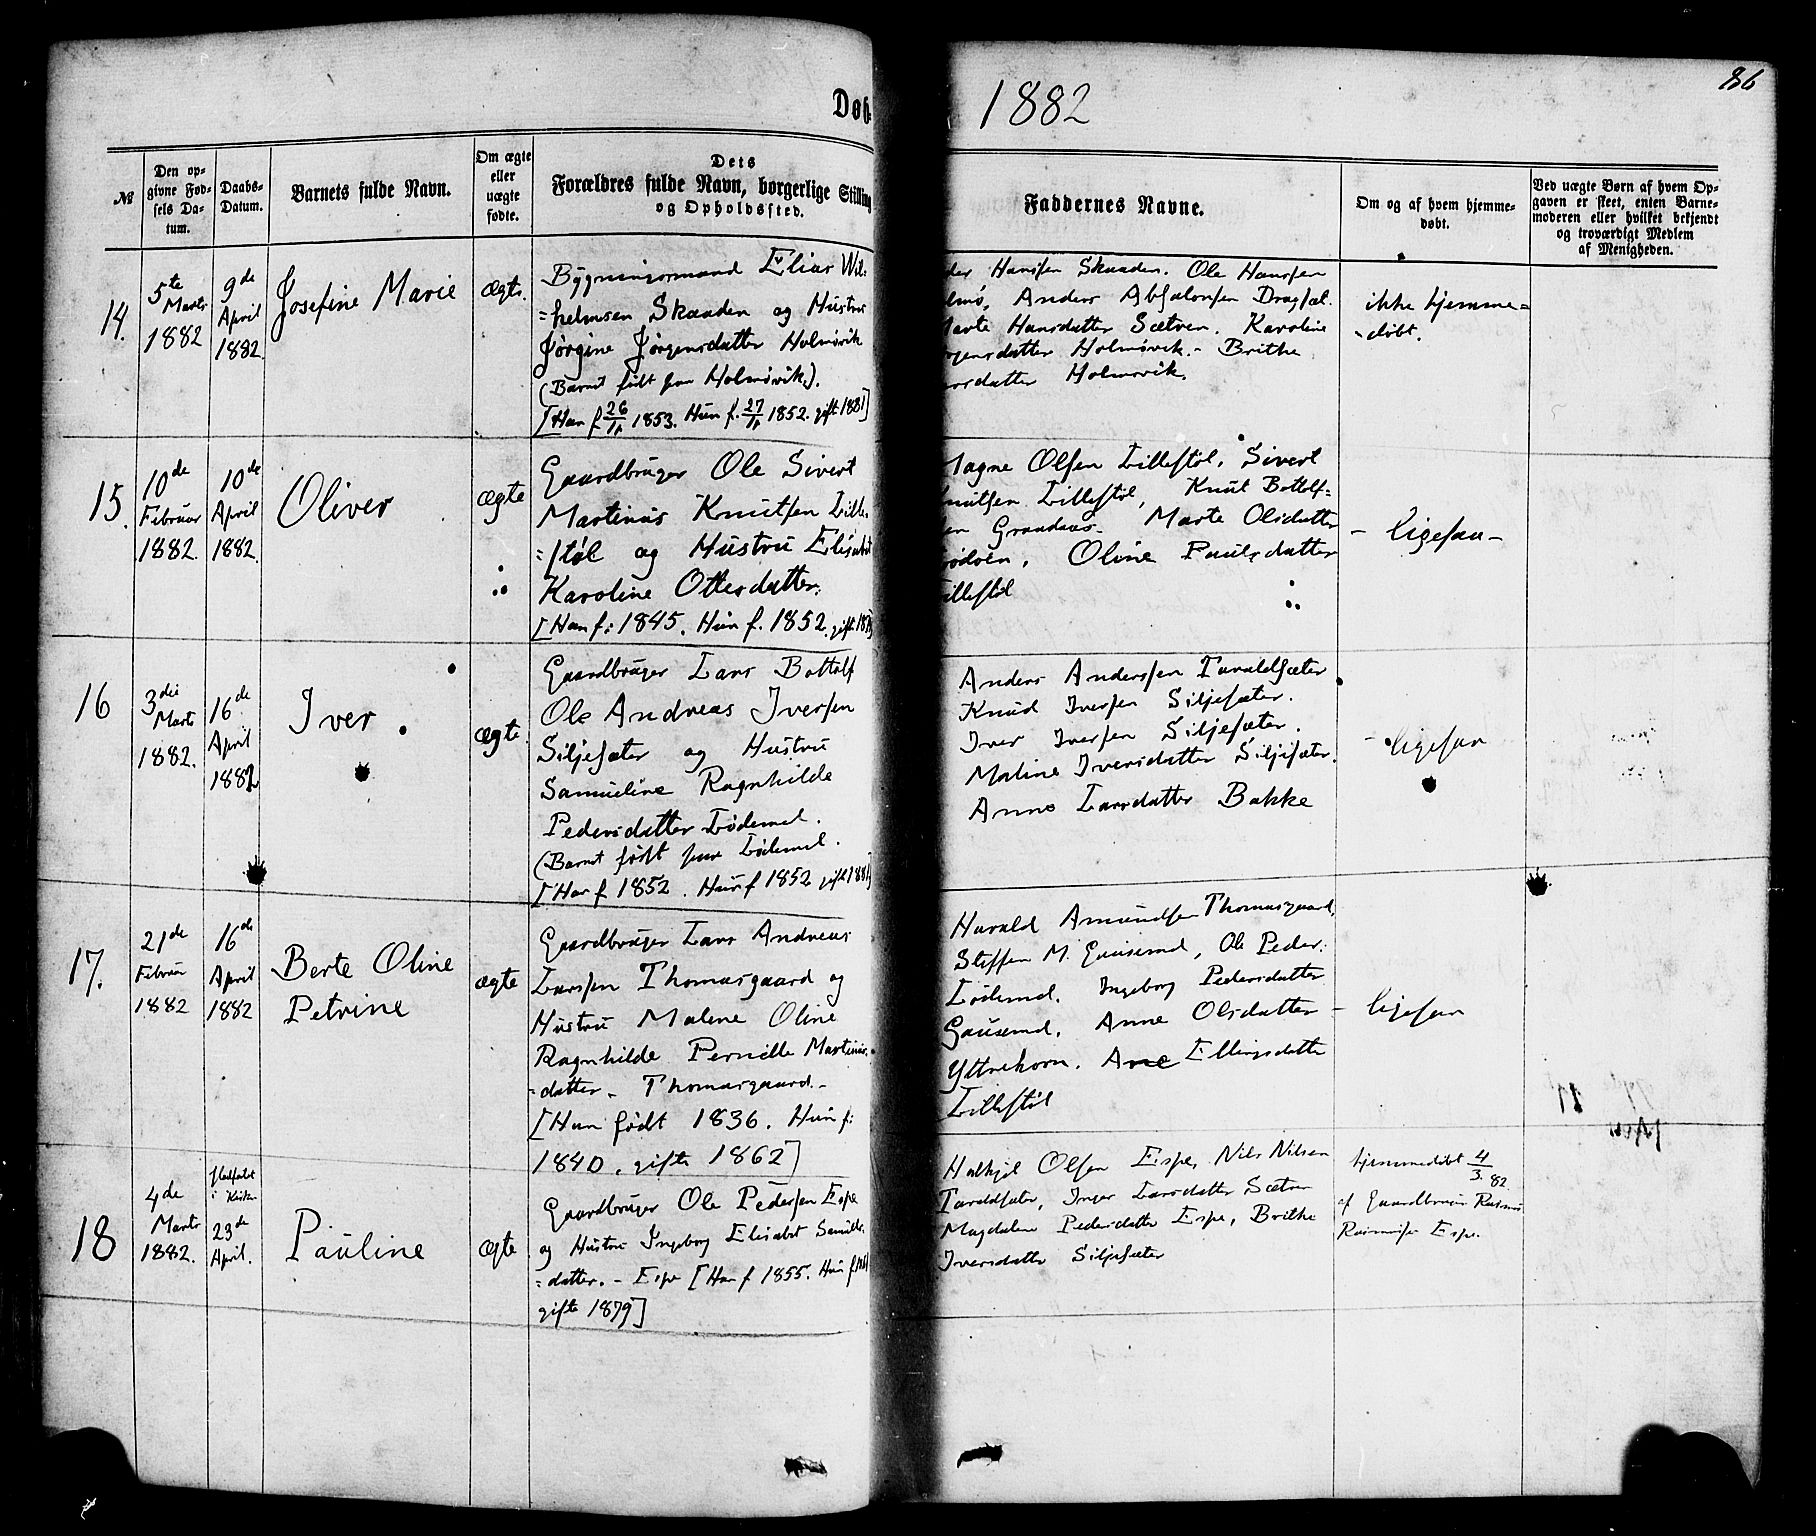 Døb-
1882
86
№
Den op-
givne Fød-
sels Da-
tum.
Daabs-
Datum.
Barnets fulde Navn.
Om ægte
eller
uægte
fødte.
Dets
Forældres fulde Navn, borgerlige Stilling
og Opholdssted.
Faddernes Navne.
Om og af hvem hjemme-
døbt.
Ved uægte Børn af hvem Op-
gaven er skeet, enten Barne-
moderen eller hvilket bekjendt
og troværdigt Medlem
af Menigheden.
14.
5te
Marts
1882
9de
April
1882.
Josefine Marie
ægte.
Bygningsmand Elias Wil-
=helmsen Skaaden og Hustru
Jørgine Jørgensdatter Holmivik
(Barnet født paa Holmivik).
[Han f. 26/11 1853. Hun f. 27/11 1852. gift 1881]
der Hanssen Skaaden. Ole Hanssen
Anders Absalonsen Dragsæt.
Marte Hansdatter Sætren. Karoline
Jørgensdatter Holmivik. - Brithe
datter Holmivik.
ikke hjemme=
-døbt.
15.
10de
Februar
1882.
10de
April
1882.
Oliver
ægte
Gaardbruger Ole Sivert
Martinus Knutsen Lille-
=støl og Hustru Elisabet
Karoline Ottersdatter.
[Han f: 1845. Hun f. 1852. gift
Magne Olsen Lillestøl, Sivert
Knutsen Lillestøl, Knut Bottolf=
sen Grandaas. Marte Olsdatter
Oline Paulsdatter
Lillestøl
- ligesaa -
16
3die
Marts
1882.
16de
April
1882
Iver
ægte
Gaardbruger Lars Bottolf
Ole Andreas Iversen
Siljesæter og Hustru
Samueline Ragnhilde
Pedersdatter Lødemel.
(Barnet født paa Lødemel.
[Han f 1852. Hun f 1852 gift 1881]
Anders Anderssen Taraldsæter
Knud Iversen Siljesæter.
Iver Iversen Siljesæter.
Maline Iversdatter Siljesæter.
Anne Larsdatter Bakke
- ligesaa
17.
21de
Februar
1882
16de
April
1882
Berte Oline
Petrine
ægte
Gaardbruger Lars Andreas
Larssen Thomasgaard og
Hustru Malene Oline
Ragnhilde Pernille Martinus-
=datter - Thomasgaard. -
[Han født 1836. Hun f:
1840. gifte 1862]
Harald Amundsen Thomasgaard,
Steffen M. Gausemel, Ole Peder:
Lødemel. Ingeborg Pedersdatter
Gausemel. Anne Olsdatter
Yttrehorn. Ane Ellingsdatter
Lillestøl
- ligesaa
18
4de
Marts
1882.
Stadfæstet
i Kirken
23de
April.
Pauline
ægte
Gaardbruger Ole Pedersen Espe
og Hustru Ingeborg Elisabet Samuels-
=datter. - Espe [Han f 1855. Hun f
gifte 1879]
Halkjel Olsen Espe, Nils Nilsen
Taraldsæter, Inger Larsdatter Sætren
Magdalene Pedersdatter Espe, Brithe
Iversdatter Siljesæter
hjemmedøbt 4/3 82.
af Gaardbruger Rasmus
Rasmussen Espe.